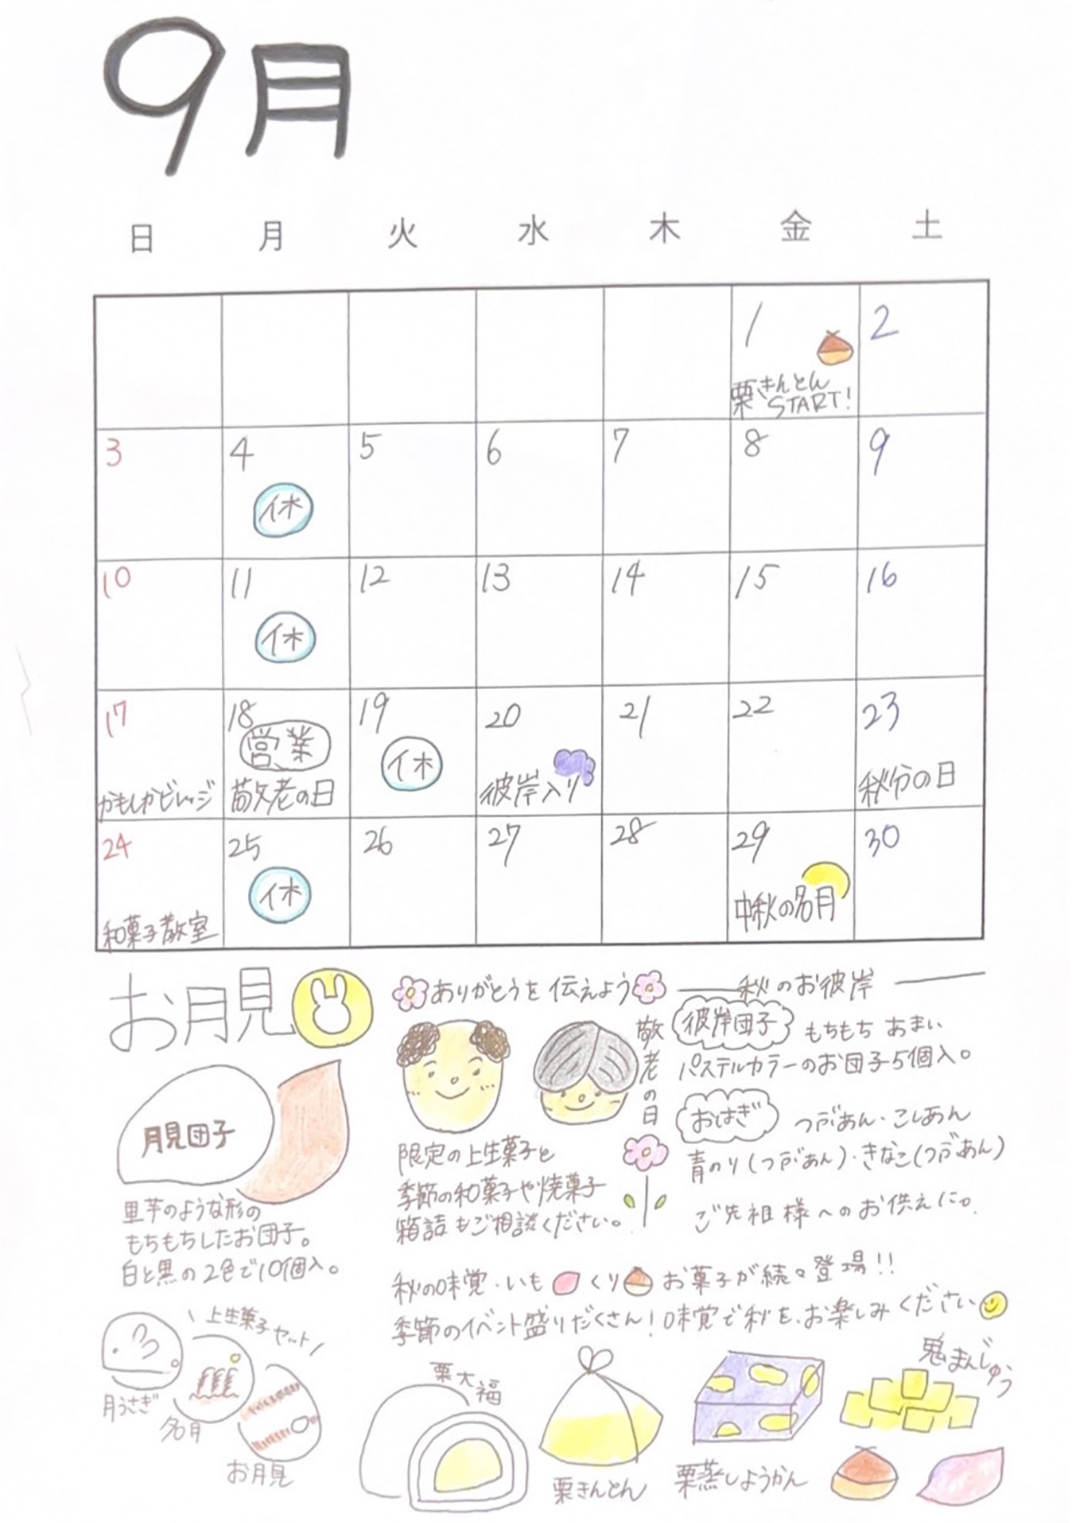 9月
日 月 火 水 木 金 土
1 2
栗きんとん
START!
3 4 5 6 7 8 9
休
10 11 12 13 14 15 16
休
17 18 19 20 21 22 23
営業 休
かもしかビレッジ 敬老の日 彼岸入り 秋分の日
24 25 26 27 28 29 30
休
和菓子教室 中秋の名月
お月見
月見団子
里芋のような形の
もちもちしたお団子。
白と黒の2色で10個入。
ありがとうを伝えよう
敬老の日
限定の上生菓子と
季節の和菓子や焼菓子
箱詰もご相談ください。
秋のお彼岸
彼岸団子 もちもち あまい
パステルカラーのお団子5個入。
おはぎ つぶあん・こしあん
青のり(つぶあん)・きなこ(つぶあん)
ご先祖様へのお供えに。
秋の味覚・いも くり お菓子が続々登場!!
季節のイベント盛りだくさん!味覚で秋を、お楽しみください
上生菓子セット
月うさぎ
名月
お月見
栗大福
栗きんとん
栗蒸しようかん
鬼まんじゅう